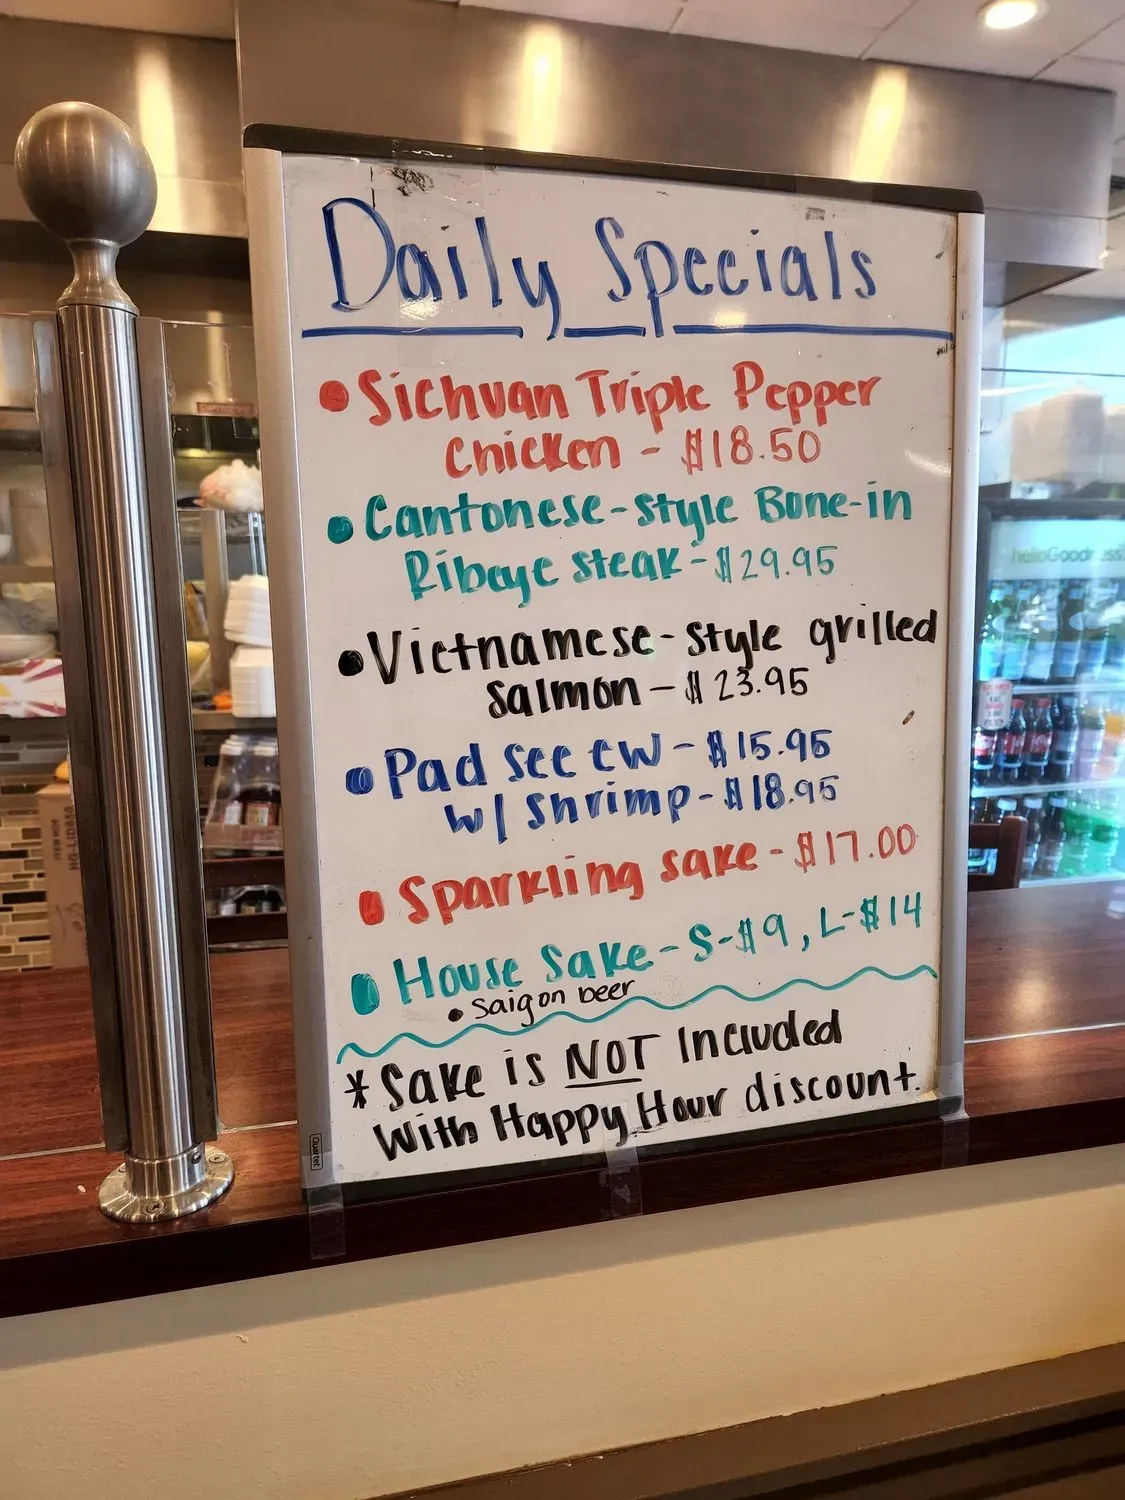 Daily Specials
• Sichuan Triple Pepper
Chicken - $18.50
• Cantonese-style Bone-in
Ribeye steak - $29.95
• Vietnamese-style grilled
salmon - $23.95
• Pad see ew - $15.95
w/ shrimp - $18.95
• Sparkling sake - $17.00
• House Sake - S-$9, L-$14
• Saigon beer
* Sake is NOT Included
With Happy Hour discount.
Quartet
helloGoodness